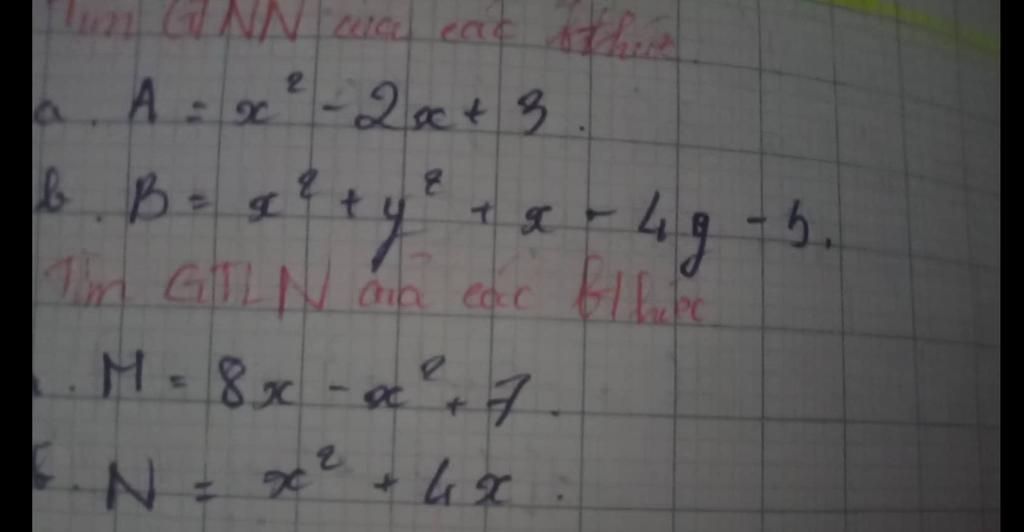 Tìm GTNN của các bthức
a. A = x² - 2x + 3.
b. B = x² + y² + x - 4y - 5.
Tìm GTLN của các bthức
. M = 8x - x² + 7.
. N = x² + 4x.